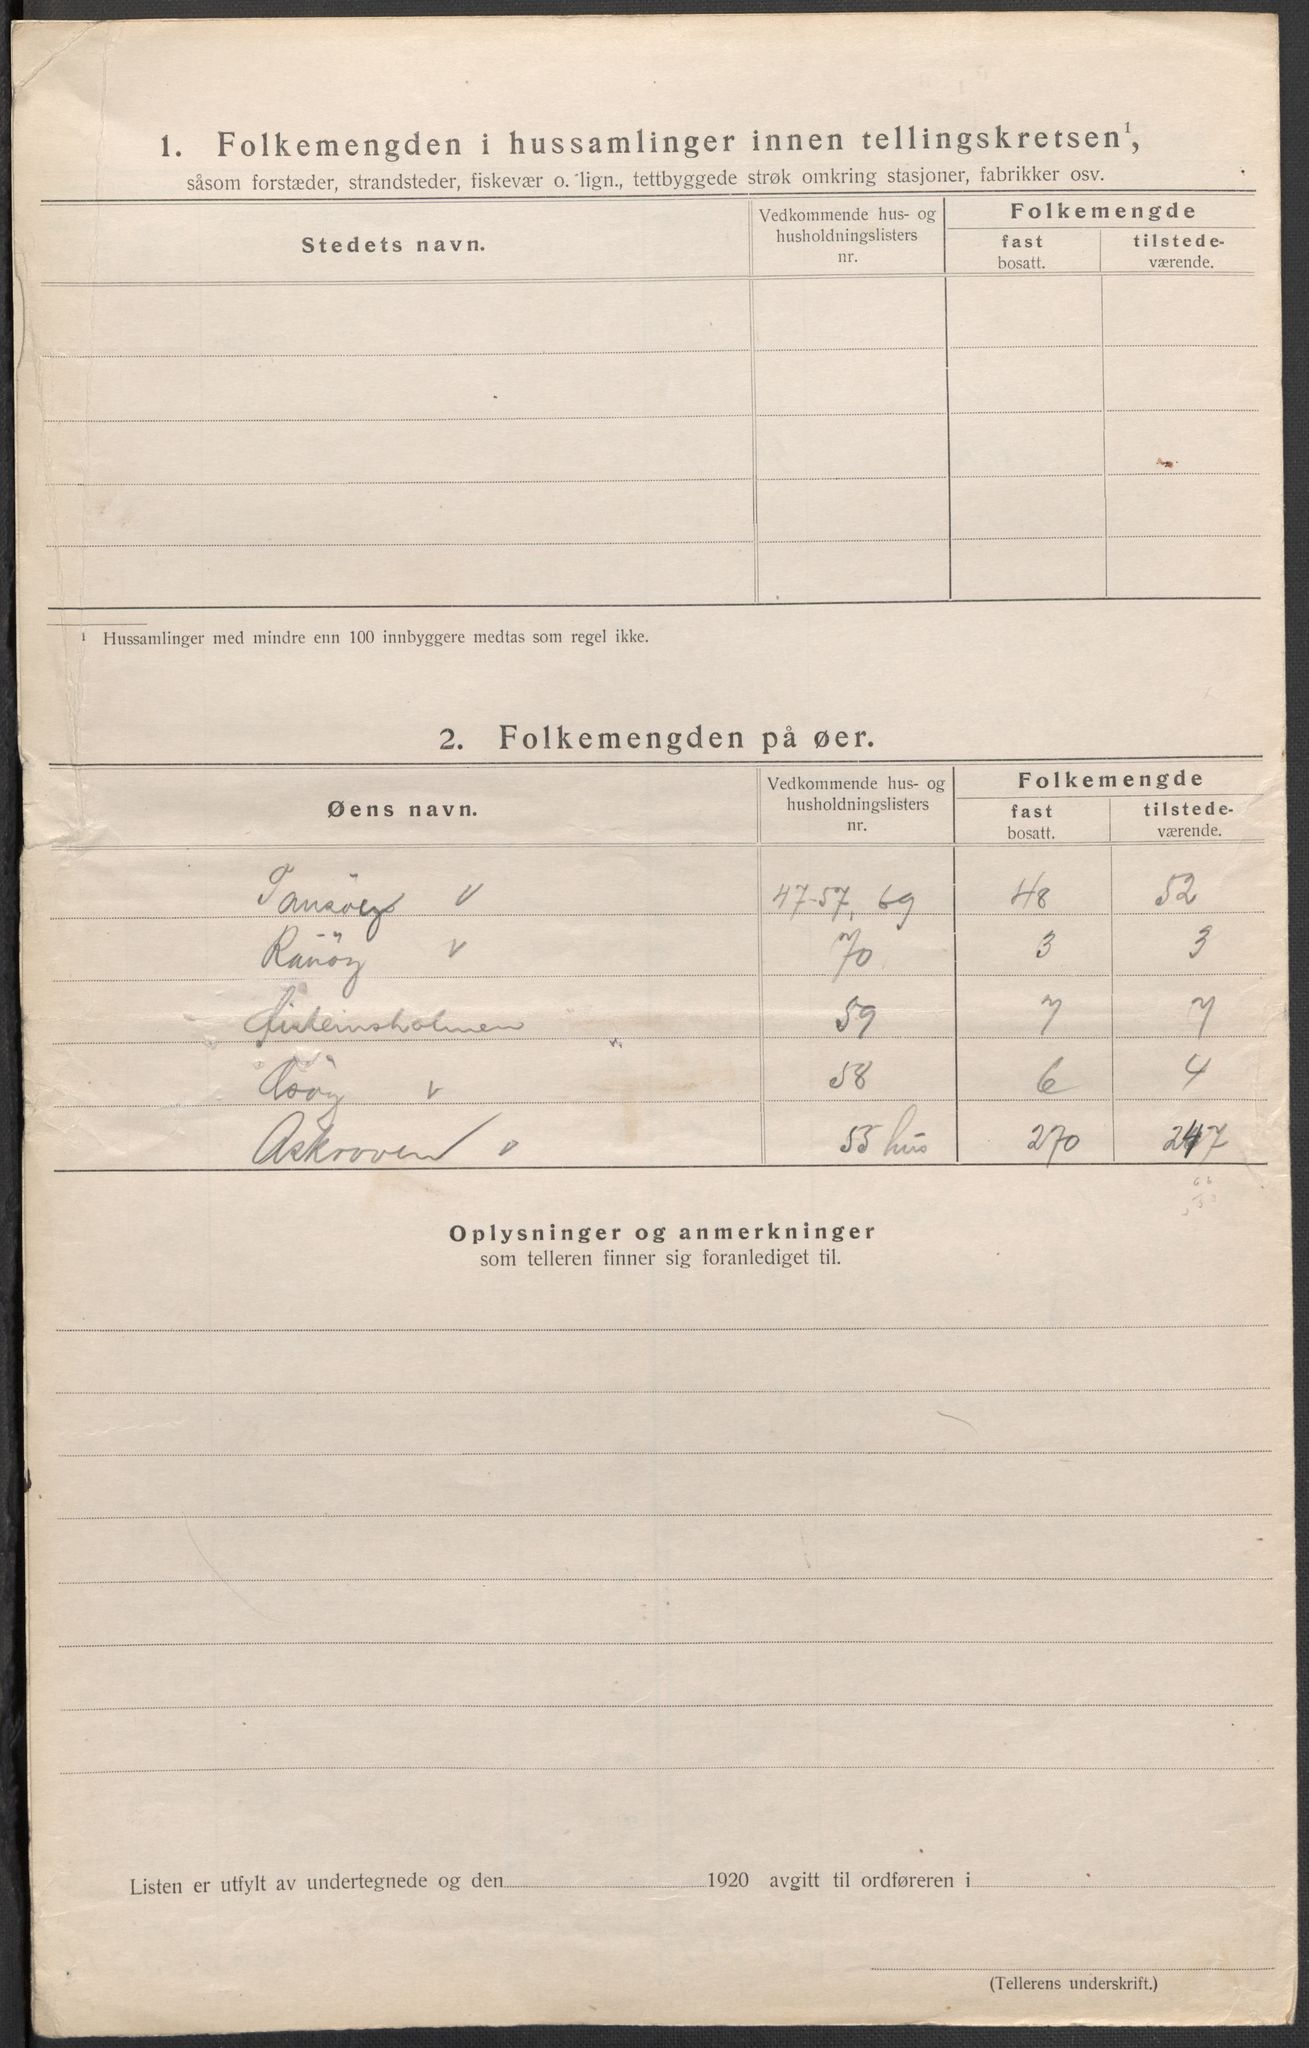 1. Folkemengden i hussamlinger innen tellingskretsen¹,
såsom forstæder, strandsteder, fiskevær o. lign., tettbyggede strøk omkring stasjoner, fabrikker osv.
Stedets navn.
Vedkommende hus- og
husholdningslisters
nr.
Folkemengde
fast
bosatt.
tilstede-
værende.
¹ Hussamlinger med mindre enn 100 innbyggere medtas som regel ikke.
2. Folkemengden på øer.
Øens navn.
Vedkommende hus- og
husholdningslisters
nr.
Folkemengde
fast
bosatt.
tilstede-
værende.
Tansöy v 47-57, 69 48 52
Rånöy v 70 3 3
59 7 7
58 6 4
Askroven v 55 hus 270 247
Oplysninger og anmerkninger
som telleren finner sig foranlediget til.
Listen er utfylt av undertegnede og den 1920 avgitt til ordføreren i
(Tellerens underskrift.)